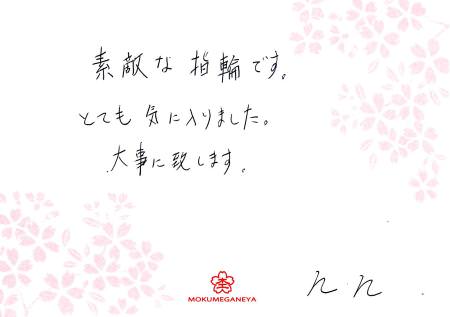 素敵な指輪です。
とても気に入りました。
大事に致します。
MOKUMEGANEYA